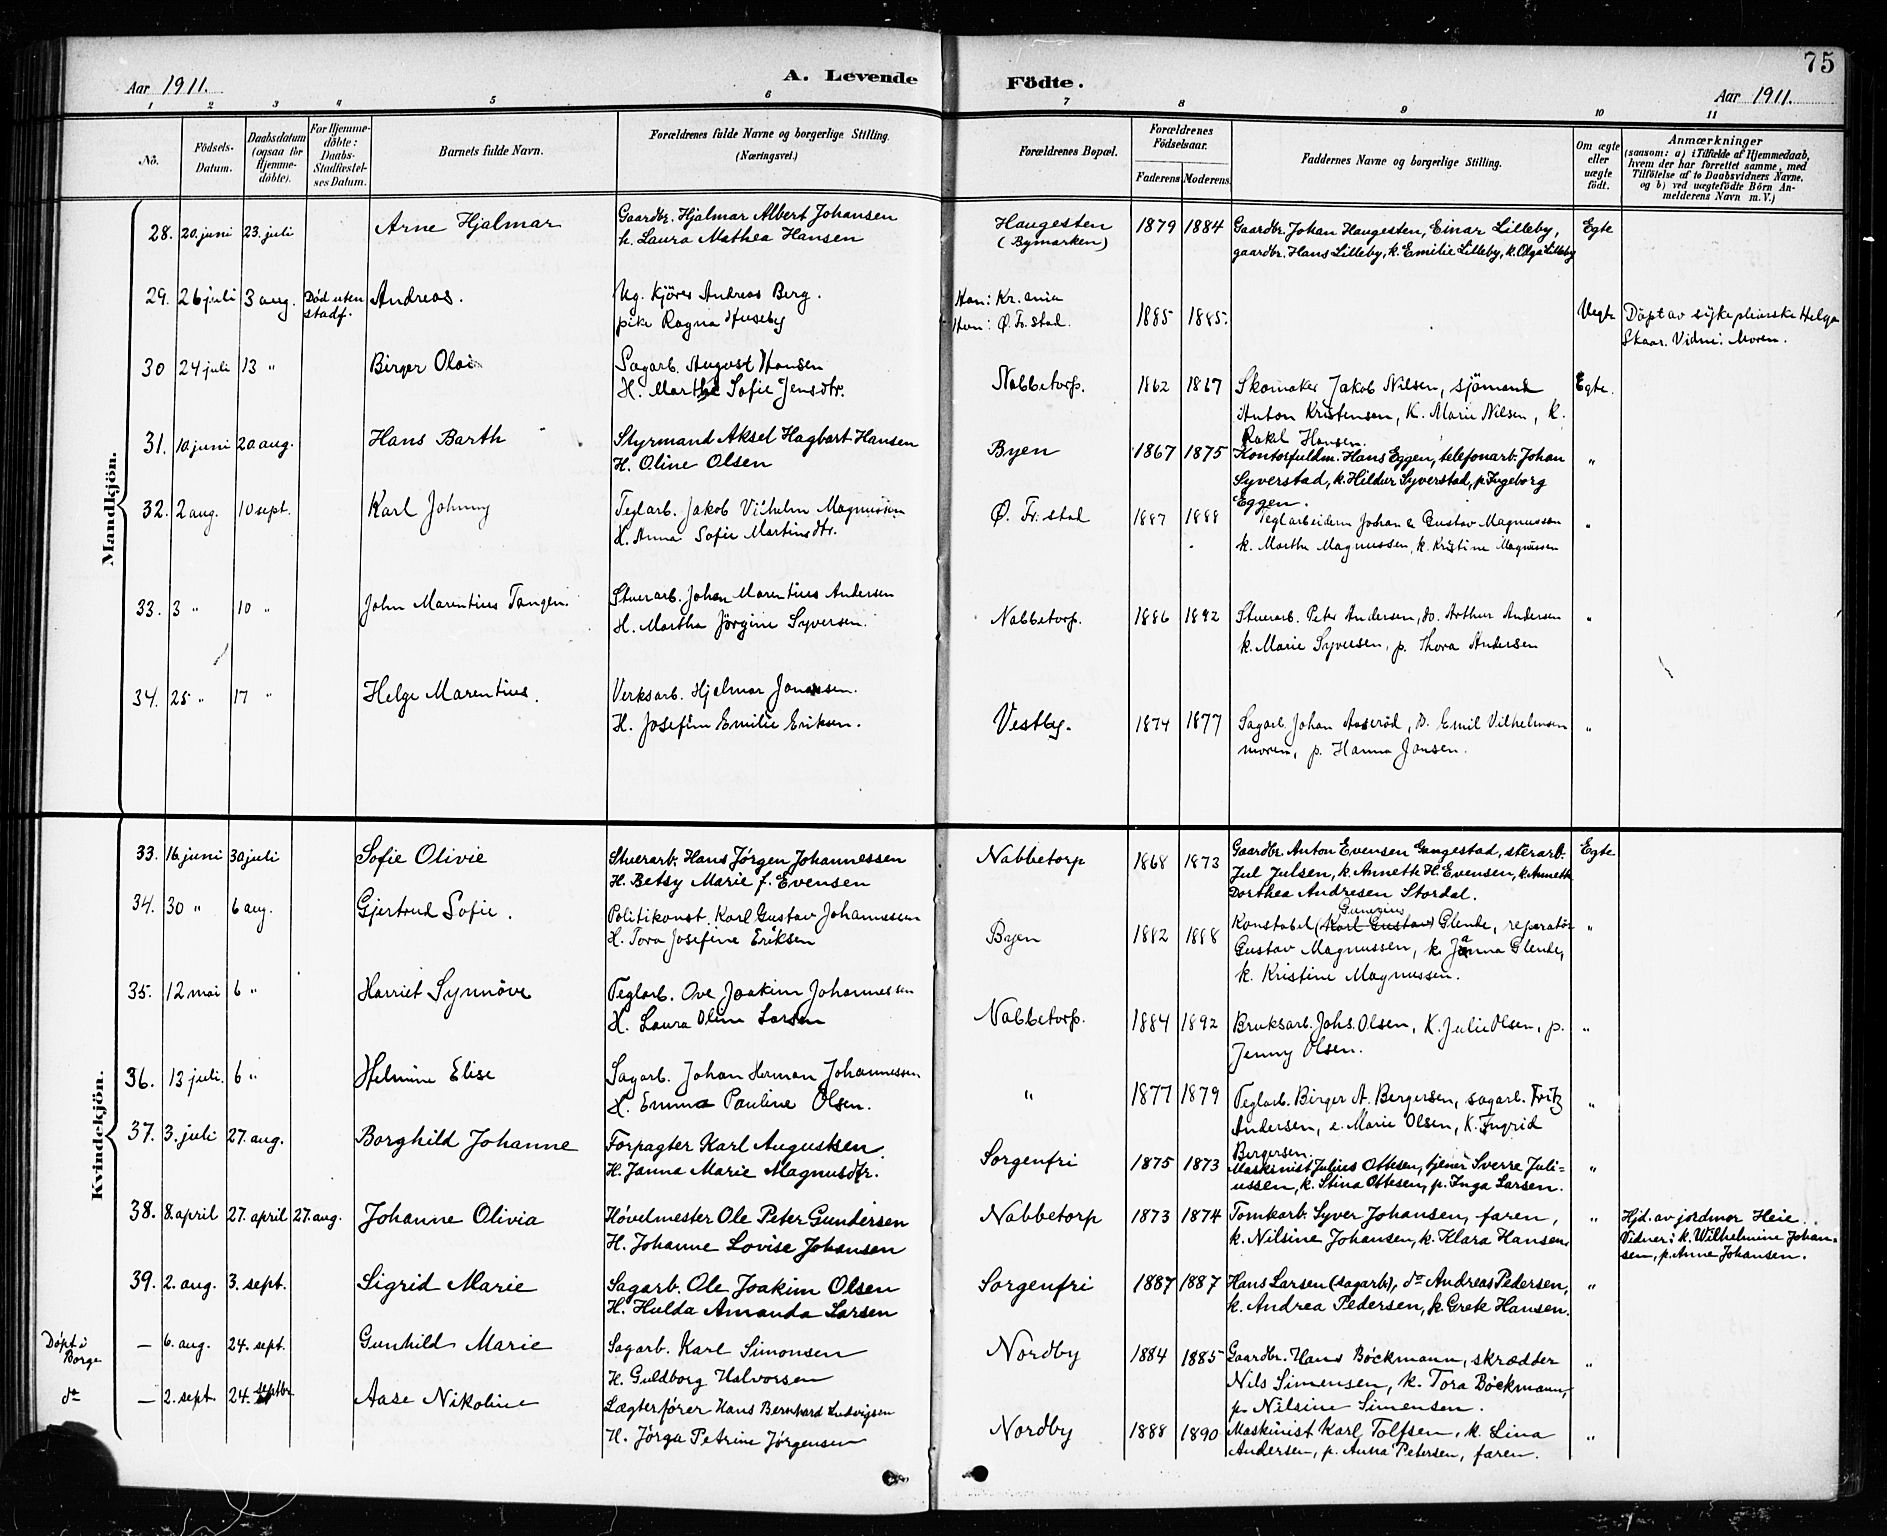 75
Aar 1911.
A. Levende
Födte.
Aar 1911.
1 2 3 4 5 6 7 8 9 10 11
No.
Födsels-Datum.
Daabsdatum (ogsaa for Hjemme-döbte).
For Hjemme-döbte: Daabs-Stadfæstel-ses Datum.
Barnets fulde Navn.
Forældrenes fulde Navne og borgerlige Stilling.
(Næringsvei.)
Forældrenes Bopæl.
Forældrenes Födselsaar.
Faderens Moderens.
Faddernes Navne og borgerlige Stilling.
Om ægte eller uægte födt.
Anmærkninger
(saasom: a) i Tilfælde af Hjemmedaab, hvem der har forrettet samme, med Tilföielse af to Daabsvidners Navne, og b) ved uægtefödte Börn Anmelderens Navn m. V.)
Mandkjön.
28. 20. juni 23. juli Arne Hjalmar Gaardbr. Hjalmar Albert Johansen Haugesten 1879 1884 Gaardbr. Johan Haugesten, Einar Lilleby, Egte
h. Laura Mathea Hansen (Bymarken) gaardbr. Hans Lilleby, k. Emilie Lilleby, k. Olga Lilleby
29. 26 juli 3 aug. Død uten Andreas. Ug. kjører Andreas Berg. Han: Kr.ania 1885 1885. Uegte Døpt av sykepleierske Helga
stadf. pike Ragna Huseby Hun: Ø. Fr.stad. Skaar. Vidne: Moren.
30 24 juli 13 " Birger Olai Sagarb. August Hansen Nabbetorp. 1862 1867 Skomaker Jakob Nilsen, sjömand Egte.
H. Marthe Sofie Jensdtr. Anton Kristensen, K. Marie Nilsen, k.
Rakel Hansen.
31. 10. juni 20 aug. Hans Barth Styrmand Aksel Hagbart Hansen Byen 1867 1875 Kontorfuldm. Hans Eggen, telefonarb. Johan "
H. Oline Olsen Syverstad, k. Hildur Syverstad, p. Ingeborg
Eggen.
32. 2 aug. 10 sept. Karl Johnny Teglarb. Jakob Vilhelm Magnussen Ø. Fr.stad 1887 1888 Teglarbeidern Johan & Gustav Magnussen "
H. Anna Sofie Martinsdtr. k. Marthe Magnussen, k. Kristine Magnussen
33. 3 " 10 " John Marentius Tangen. Stuerarb. Johan Marentius Andersen Nabbetorp. 1886 1892 Stuerarb. Peter Andersen, do. Arthur Andersen "
H. Martha Jörgine Syversen. k. Marie Syversen, p. Thora Andersen
34. 25 " 17 " Helge Marentius. Verksarb. Hjelmar Jonassen. Vestby. 1874 1877 Sagarb. Johan Aaserød, D. Emil Vilhelmsen "
H. Josefine Emilie Eriksen. moren, p. Hanna Jonsen.
Kvindekjön.
33. 16 juni 30 juli Sofie Olivie Stuerarb. Hans Jörgen Johannessen Nabbetorp 1868 1873 Gaardbr. Anton Evensen Gangestad, sterarb. Egte
H. Betsy Marie f. Evensen Jul Julsen, k. Annette H. Evensen, k. Annette
Dorthea Andresen Stordal.
34. 30 " 6 aug. Gjertrud Sofie. Politikonst. Karl Gustav Johannessen Byen 1882 1888 Konstabel (Karl Gustav) Glende, reparatör "
H. Tora Josefine Eriksen Gustav Magnussen, k. Janna Glende,
k. Kristine Magnussen.
35. 12 mai 6 " Harriet Synnöve Teglarb. Ove Joakim Johannessen Nabbetorp. 1884 1892 Bruksarb. Johs. Olsen, K. Julie Olsen, p. "
H. Laura Oline Larsen Jenny Olsen.
36. 13 juli. 6 " Helmine Elise Sagarb. Johan Herman Johannessen " 1877 1879 Teglarb. Birger A. Bergersen, sagarb. Fritz "
H. Emma Pauline Olsen. Andersen, e. Marie Olsen, K. Ingrid
Bergersen.
37. 3. juli 27. aug. Borghild Johanne Forpagter Karl Augustsen. Sorgenfri 1875 1873 Maskinist Julius Ottesen, tjener Sverre Juli- "
H. Janna Marie Magnusdtr. ussen, k. Stina Ottesen, p. Inga Larsen.
38. 8. april 27. april 27. aug. Johanne Olivia Høvelmester Ole Peter Gundersen Nabbetorp 1873 1874 Tomtearb. Syver Johansen, faren, " Hjd. av jordmor Heie.
H. Johanne Lovise Johansen k. Nilsine Johansen, k. Klara Hansen. Vidner: k. Wilhelmine Johan-
sen, p. Anne Johansen.
39. 2. aug. 3. sept. Sigrid Marie Sagarb. Ole Joakim Olsen Sorgenfri 1887 1887 Hans Larsen (sagarb), do Andreas Pedersen, "
H. Hulda Amanda Larsen k. Andrea Pedersen, p. Grete Hansen.
Døpt i Borge — 6. aug. 24. sept. Gunhild Marie Sagarb. Karl Simonsen Nordby 1884 1885 Gaardbr. Hans Böckmann, skrædder "
H. Guldborg Halvorsen Nils Simensen, k. Tora Böckmann,
p. Nilsine Simensen.
do — 2. sept. 24. septbr. Aase Nikoline Lægterfører Hans Bernhard Ludvigsen Nordby 1888 1890 Maskinist Karl Tolfsen, k. Lina "
H. Jörga Petrine Jörgensen Andersen, p. Anna Petersen, faren.